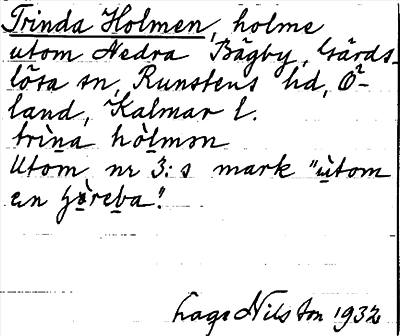 Trinda Holmen, holme
utom Nedra Bägby, Gårds-
lösa sn, Runstens hd, Ö-
land, Kalmar l.
trìna hòlmən
Utom nr 3:s mark "ùtom
en
Lage Nilsson 1932